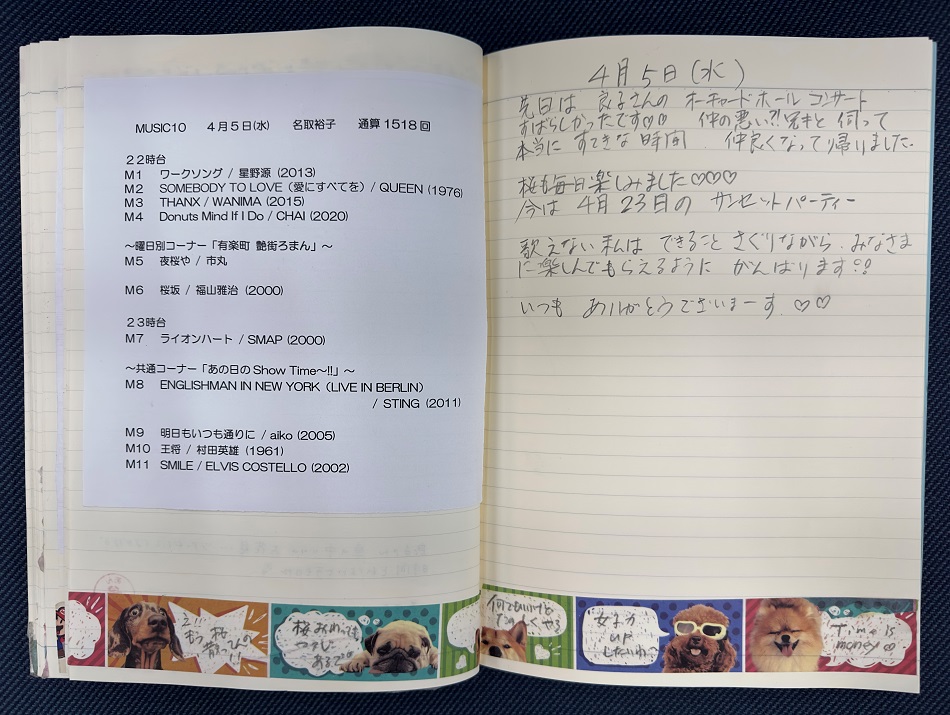 MUSIC10 4月5日(水) 名取裕子 通算1518回
22時台
M1 ワークソング / 星野源 (2013)
M2 SOMEBODY TO LOVE(愛にすべてを) / QUEEN (1976)
M3 THANX / WANIMA (2015)
M4 Donuts Mind If I Do / CHAI (2020)
～曜日別コーナー「有楽町 艶街ろまん」～
M5 夜桜や / 市丸
M6 桜坂 / 福山雅治 (2000)
23時台
M7 ライオンハート / SMAP (2000)
～共通コーナー「あの日のShow Time～!!」～
M8 ENGLISHMAN IN NEW YORK(LIVE IN BERLIN)
/ STING (2011)
M9 明日もいつも通りに / aiko (2005)
M10 王将 / 村田英雄 (1961)
M11 SMILE / ELVIS COSTELLO (2002)
え!!
もう桜
散っっ
桜みれっても
つつじ
あるで
4月5日(水)
先日は 良子さんの オーチャードホール コンサート
すばらしかったです♡♡ 仲の悪い?!兄と伺って
本当に すてきな時間 仲良くなって帰りました.
桜も毎日楽しみました♡♡♡
今は 4月23日の サンセットパーティー
歌えない私は できること さぐりながら.みなさま
に楽しんでもらえるように がんばります!!
いつも ありがとうございまーす ♡♡
何でもいいけど
女子力
UP
したいわ
Time is
money